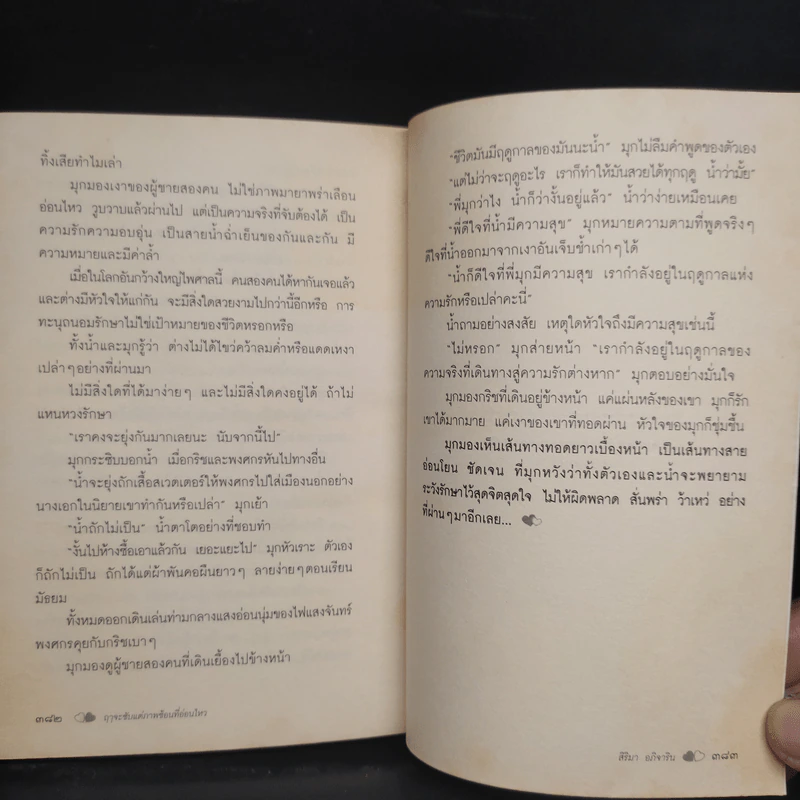 ทิ้งเสียทำไมเล่า
มุกมองเงาของผู้ชายสองคน ไม่ใช่ภาพมายาพร่าเลือน
อ่อนไหว วูบวาบแล้วผ่านไป แต่เป็นความจริงที่จับต้องได้ เป็น
ความรักความอบอุ่น เป็นสายน้ำฉ่ำเย็นของกันและกัน มี
ความหมายและมีค่าล้ำ
เมื่อในโลกอันกว้างใหญ่ไพศาลนี้ คนสองคนได้หากันเจอแล้ว
และต่างมีหัวใจให้แก่กัน จะมีสิ่งใดสวยงามไปกว่านี้อีกหรือ การ
ทะนุถนอมรักษาไม่ใช่เป้าหมายของชีวิตหรอกหรือ
ทั้งน้ำและมุกรู้ว่า ต่างไม่ได้ไขว่คว้าลมค่ำหรือแดดเหงา
เปล่าๆอย่างที่ผ่านมา
ไม่มีสิ่งใดที่ได้มาง่ายๆ และไม่มีสิ่งใดคงอยู่ได้ ถ้าไม่
แหนหวงรักษา
"เราคงจะยุ่งกันมากเลยนะ นับจากนี้ไป"
มุกกระซิบบอกน้ำ เมื่อกริชและพงศกรหันไปทางอื่น
"น้ำจะยุ่งถักเสื้อสเวตเตอร์ให้พงศกรไปใส่เมืองนอกอย่าง
นางเอกในนิยายเขาทำกันหรือเปล่า" มุกเย้า
"น้ำถักไม่เป็น" น้ำตาโตอย่างที่ชอบทำ
"งั้นไปห้างซื้อเอาแล้วกัน เยอะแยะไป" มุกหัวเราะ ตัวเอง
ก็ถักไม่เป็น ถักได้แต่ผ้าพันคอผืนยาวๆ ลายง่ายๆตอนเรียน
มัธยม
ทั้งหมดออกเดินเล่นท่ามกลางแสงอ่อนนุ่มของไฟแสงจันทร์
พงศกรคุยกับกริชเบาๆ
มุกมองดูผู้ชายสองคนที่เดินเยื้องไปข้างหน้า
๓๘๒ ฤๅจะซับแต่ภาพซ้อนที่อ่อนไหว
"ชีวิตมันมีฤดูกาลของมันนะน้ำ" มุกไม่ลืมคำพูดของตัวเอง
"แต่ไม่ว่าจะฤดูอะไร เราก็ทำให้มันสวยได้ทุกฤดู น้ำว่ามั้ย"
"พี่มุกว่าไง น้ำก็ว่างั้นอยู่แล้ว" น้ำว่าง่ายเหมือนเคย
"พี่ดีใจที่น้ำมีความสุข" มุกหมายความตามที่พูดจริงๆ
ดีใจที่น้ำออกมาจากเงาอันเจ็บช้ำเก่าๆได้
"น้ำก็ดีใจที่พี่มุกมีความสุข เรากำลังอยู่ในฤดูกาลแห่ง
ความรักหรือเปล่าคะนี่"
น้ำถามอย่างสงสัย เหตุใดหัวใจถึงมีความสุขเช่นนี้
"ไม่หรอก" มุกส่ายหน้า "เรากำลังอยู่ในฤดูกาลของ
ความจริงที่เดินทางสู่ความรักต่างหาก" มุกตอบอย่างมั่นใจ
มุกมองกริชที่เดินอยู่ข้างหน้า แค่แผ่นหลังของเขา มุกก็รัก
เขาได้มากมาย แค่เงาของเขาที่ทอดผ่าน หัวใจของมุกก็ชุ่มชื้น
มุกมองเห็นเส้นทางทอดยาวเบื้องหน้า เป็นเส้นทางสาย
อ่อนโยน ชัดเจน ที่มุกหวังว่าทั้งตัวเองและน้ำจะพยายาม
ระวังรักษาไว้สุดจิตสุดใจ ไม่ให้ผิดพลาด สั่นพร่า ว้าเหว่ อย่าง
ที่ผ่านๆมาอีกเลย...
สิริมา อภิจาริน ๓๘๓